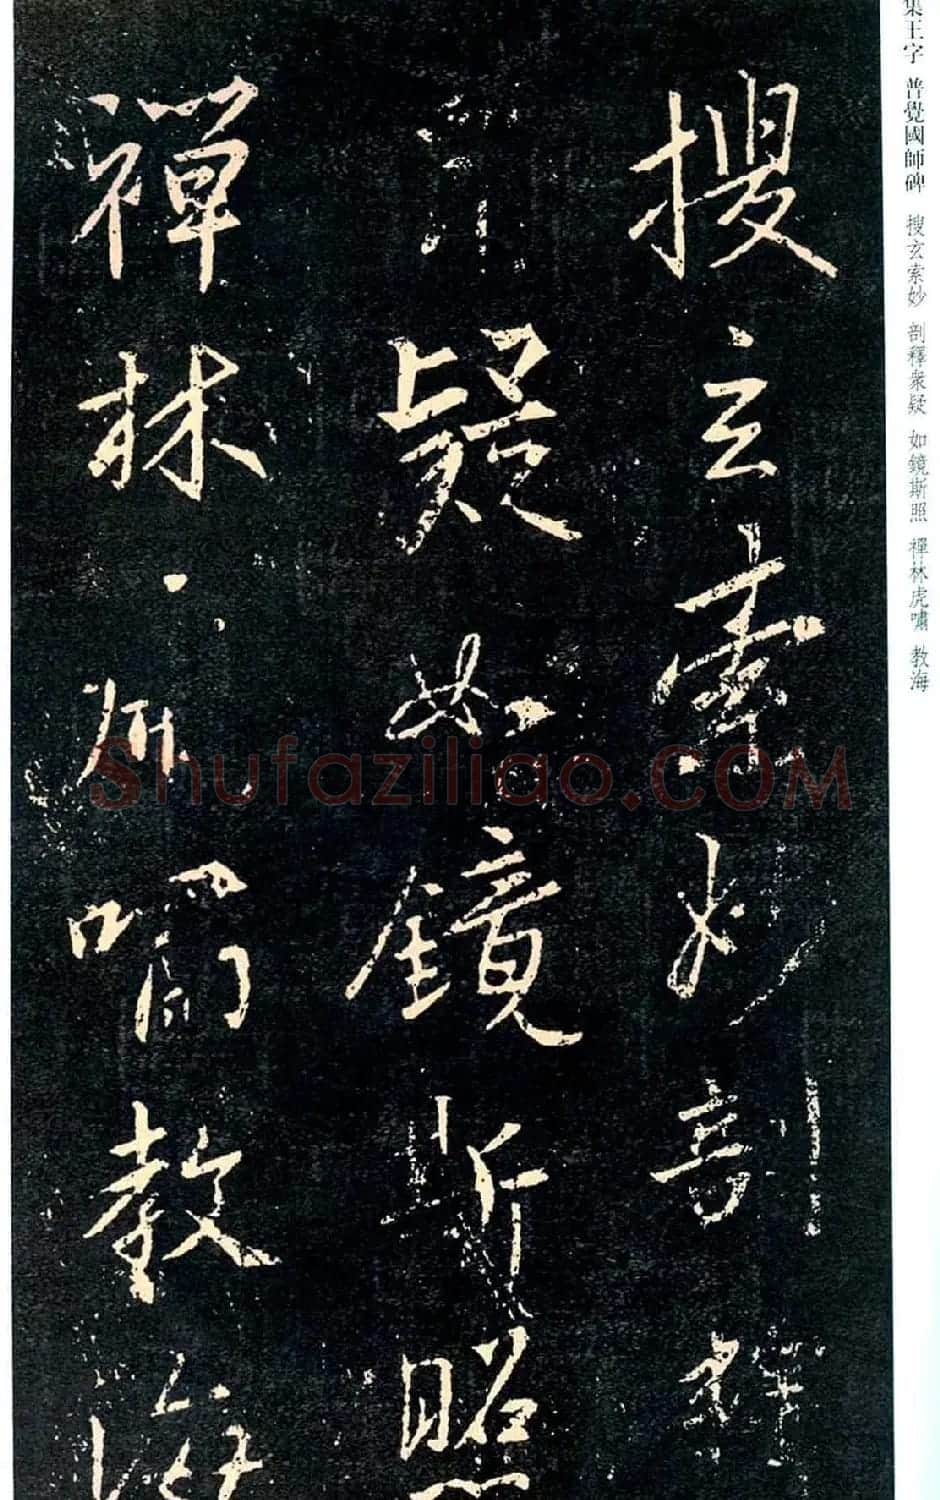 集王字 普覺國師碑 搜玄索妙 剖釋衆疑 如鏡斯照 禪林虎嘯 教海
搜玄索妙剖釋
疑如鏡斯照
禪林虎嘯教海
Shufaziliao.COM